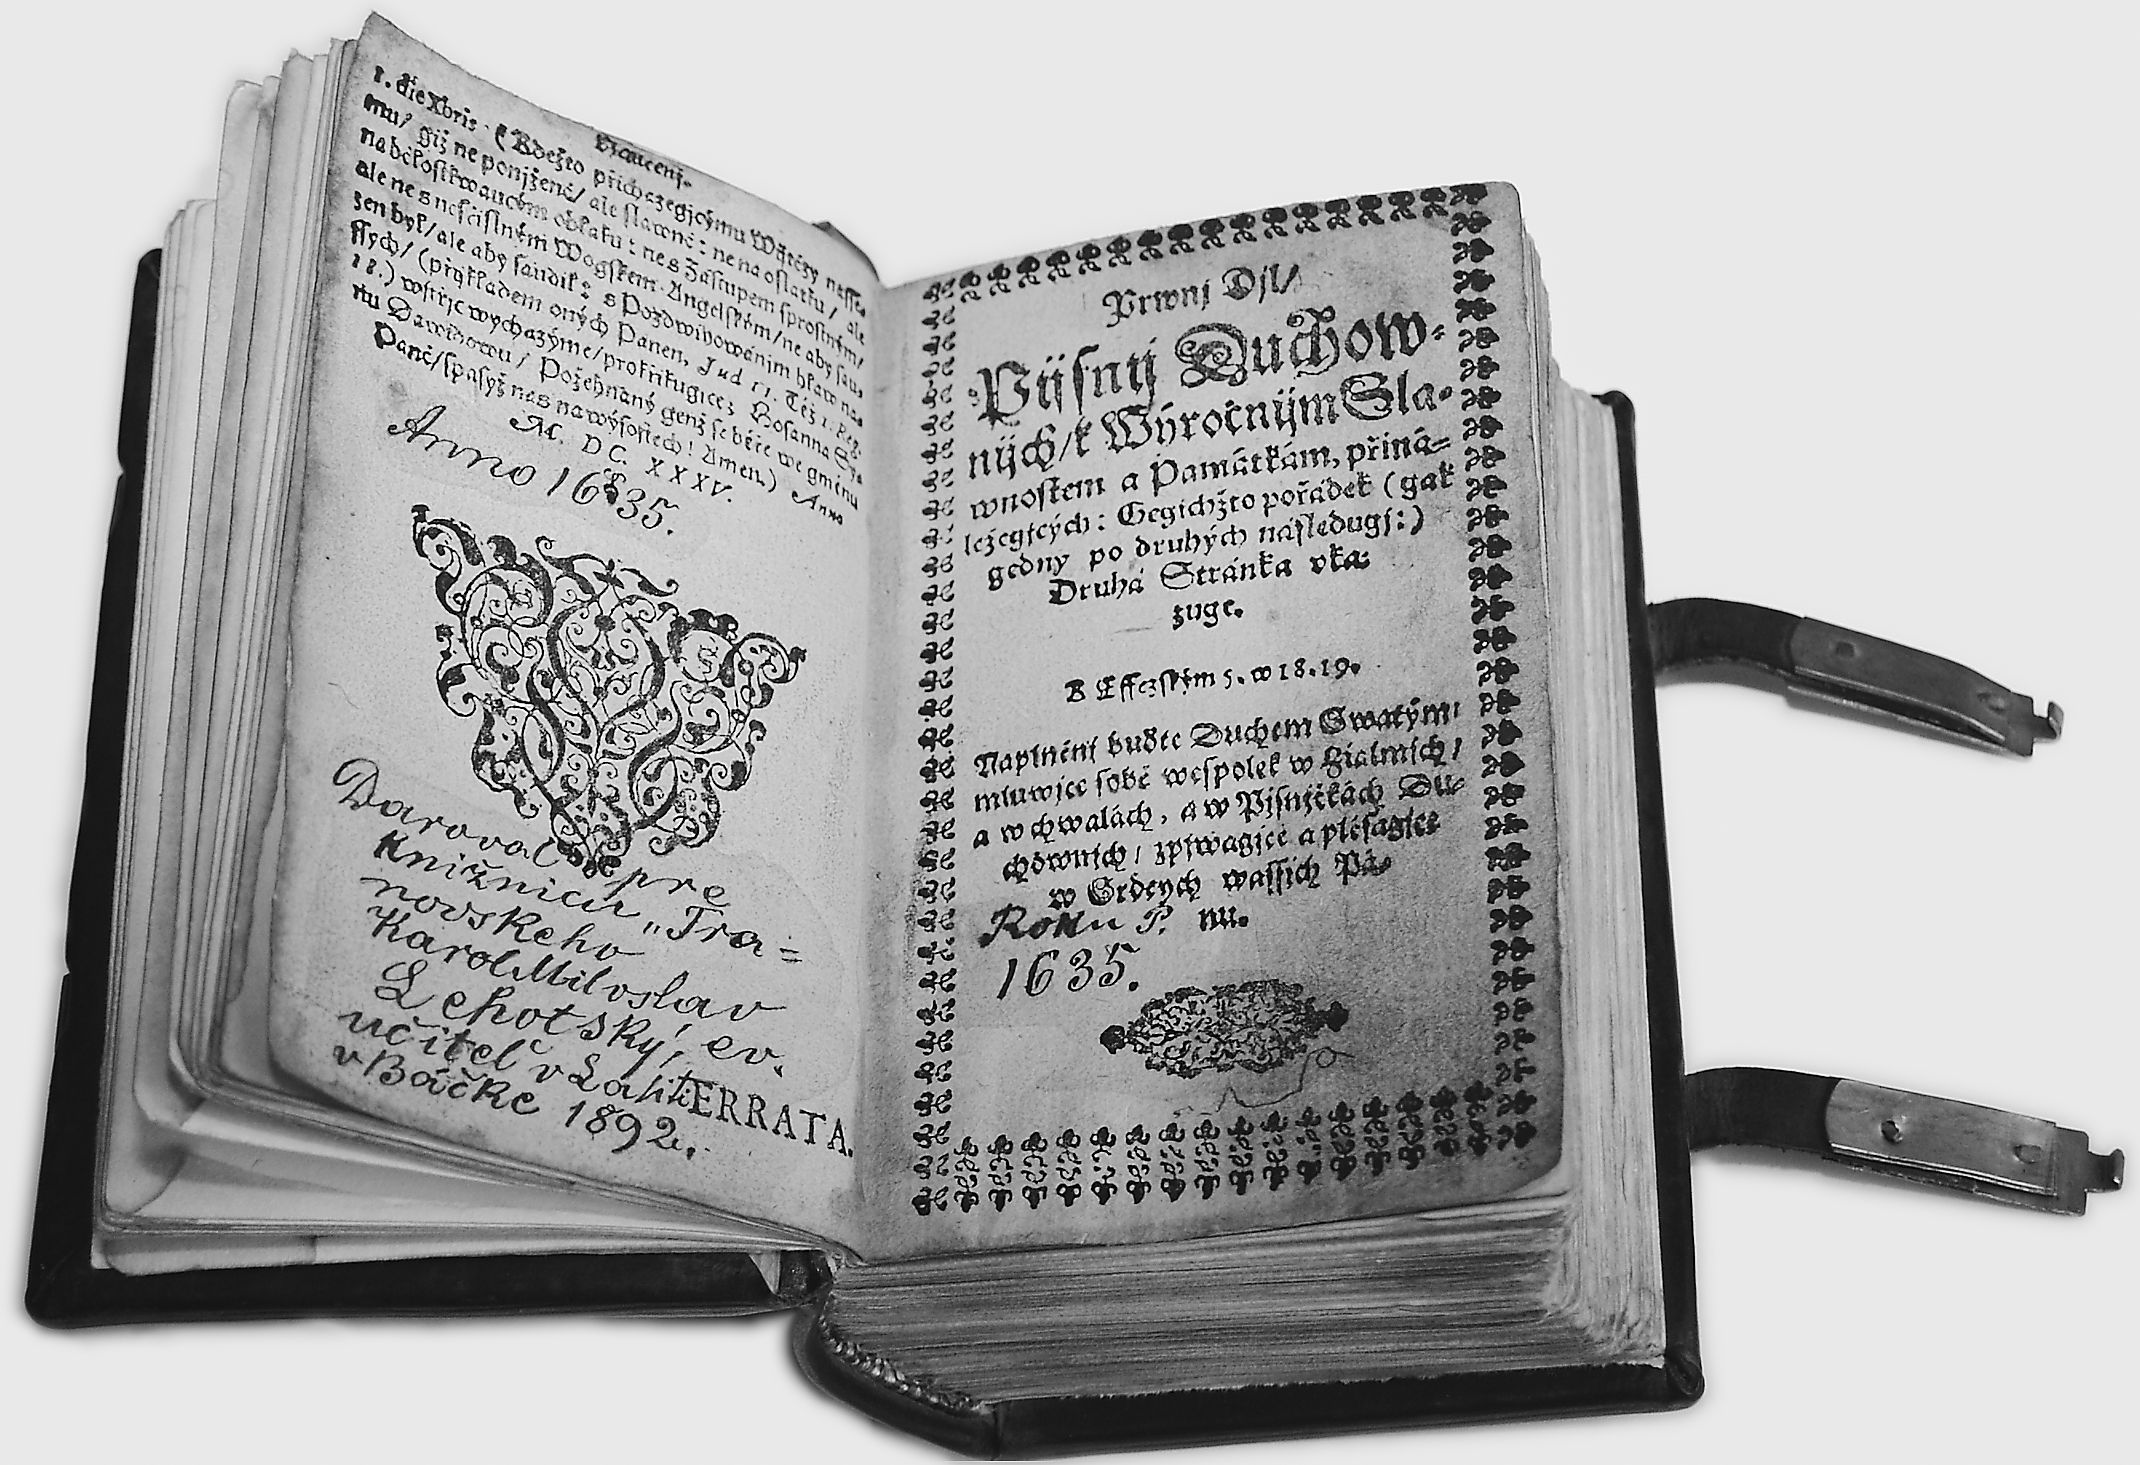 1. die Xbris (Kdežto přicházegjcýmu Wjtězy nasse-
mu/ giž ne ponjženě/ ale slawně: ne na oslátku/ ale
na běloskwaucým obłaku: ne s zástupem sprostným/
ale ne s nesčíslným Wogskem Angelským/ ne aby sau-
zen był/ ale aby saudił: s Pozdwihowánjm hław na-
ssých/ (přjkładem oných Panen, Jud 11. Též 1. Reg.
18.) wstřjc wycházýme/ prokřikugjce: Hosanna Sy-
nu Dawidowu/ Požehnaný genž se béře we gménu
Páně/ spasyž nás na wýsostech! Amen.) Anno
M. DC. XXXV.
Anno 1635.
Daroval pre
knižnicu „Tra=
novskeho
Karol Miloslav
Lehotský, ev.
učiteľ v Laliti
v Báčke 1892.
ERRATA.
Prwnj Djl/
Pijsnij Duchow-
nijch/ k Wýročnijm Sla-
wnostem a Památkám, přiná-
ležegjcých: Gegichžto pořádek (gak
gedny po druhých násedugj:)
Druhá Stránka vka-
zuge.
K Effezským 5. w 18. 19.
Naplněni buďte Duchem Swatým/
mluwjce sobě wespolek w Žialmjch/
a w chwalách, a w Pjsničkách Du-
chownjch/ zpjwagjce a plésagjce
w Srdcých wassich Pá-
nu.
Roku P.
1635.